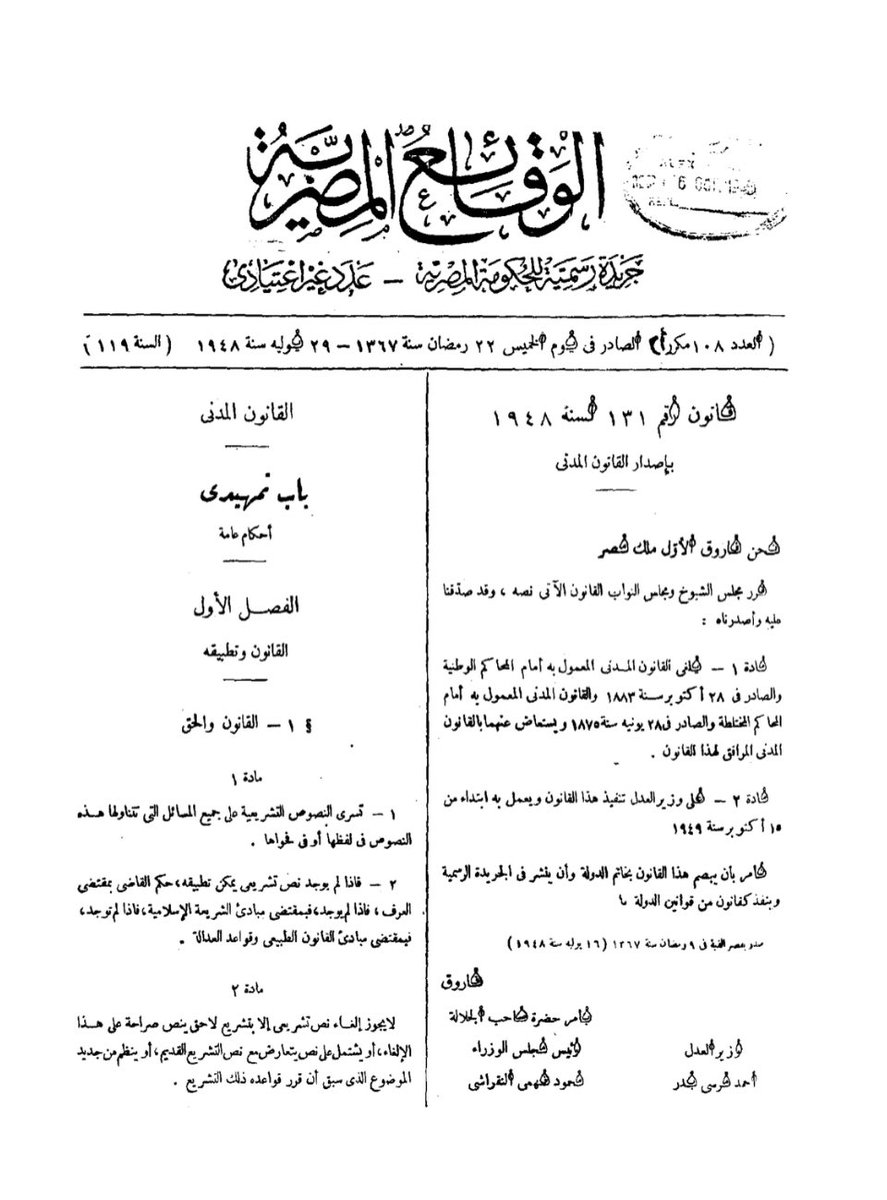 الوقائع المصرية
جريدة رسمية للحكومة المصرية – عدد غير اعتيادى
( العدد ١٠٨ مكرر أ) الصادر فى يوم الخميس ٢٢ رمضان سنة ١٣٦٧ – ٢٩ يوليه سنة ١٩٤٨ ( السنة ١١٩ )
قانون رقم ١٣١ لسنة ١٩٤٨
بإصدار القانون المدنى
نحن فاروق الأول ملك مصر
قرر مجلس الشيوخ ومجلس النواب القانون الآتى نصه ، وقد صدّقنا
عليه وأصدرناه :
مادة ١ – يلغى القانون المدنى المعمول به أمام المحاكم الوطنية
والصادر فى ٢٨ أكتوبر سنة ١٨٨٣ والقانون المدنى المعمول به أمام
المحاكم المختلطة والصادر فى ٢٨ يونيه سنة ١٨٧٥ ويستعاض عنهما بالقانون
المدنى المرافق لهذا القانون .
مادة ٢ – على وزير العدل تنفيذ هذا القانون ويعمل به ابتداء من
١٥ أكتوبر سنة ١٩٤٩
نأمر بأن يبصم هذا القانون بخاتم الدولة وأن ينشر فى الجريدة الرسمية
وينفذ كقانون من قوانين الدولة ما
صدر بقصر القبة فى ٩ رمضان سنة ١٣٦٧ ( ١٦ يوليه سنة ١٩٤٨ )
فاروق
بأمر حضرة صاحب الجلالة
وزير العدل رئيس مجلس الوزراء
أحمد مرسى بدر محمود فهمى النقراشى
القانون المدنى
باب تمهيدى
أحكام عامة
الفصل الأول
القانون وتطبيقه
§ ١ – القانون والحق
مادة ١
١ – تسرى النصوص التشريعية على جميع المسائل التى تتناولها هذه
النصوص فى لفظها أو فى فحواها .
٢ – فاذا لم يوجد نص تشريعى يمكن تطبيقه، حكم القاضى بمقتضى
العرف ، فاذا لم يوجد، فبمقتضى مبادئ الشريعة الإسلامية، فاذا لم توجد،
فبمقتضى مبادئ القانون الطبيعى وقواعد العدالة .
مادة ٢
لا يجوز إلغاء نص تشريعى إلا بتشريع لاحق ينص صراحة على هذا
الإلغاء، أو يشتمل على نص يتعارض مع نص التشريع القديم، أو ينظم من جديد
الموضوع الذى سبق أن قرر قواعده ذلك التشريع .